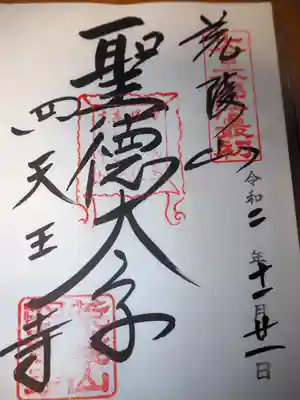 荒陵山
令和二年十一月廿一日
聖徳太子
四天王寺